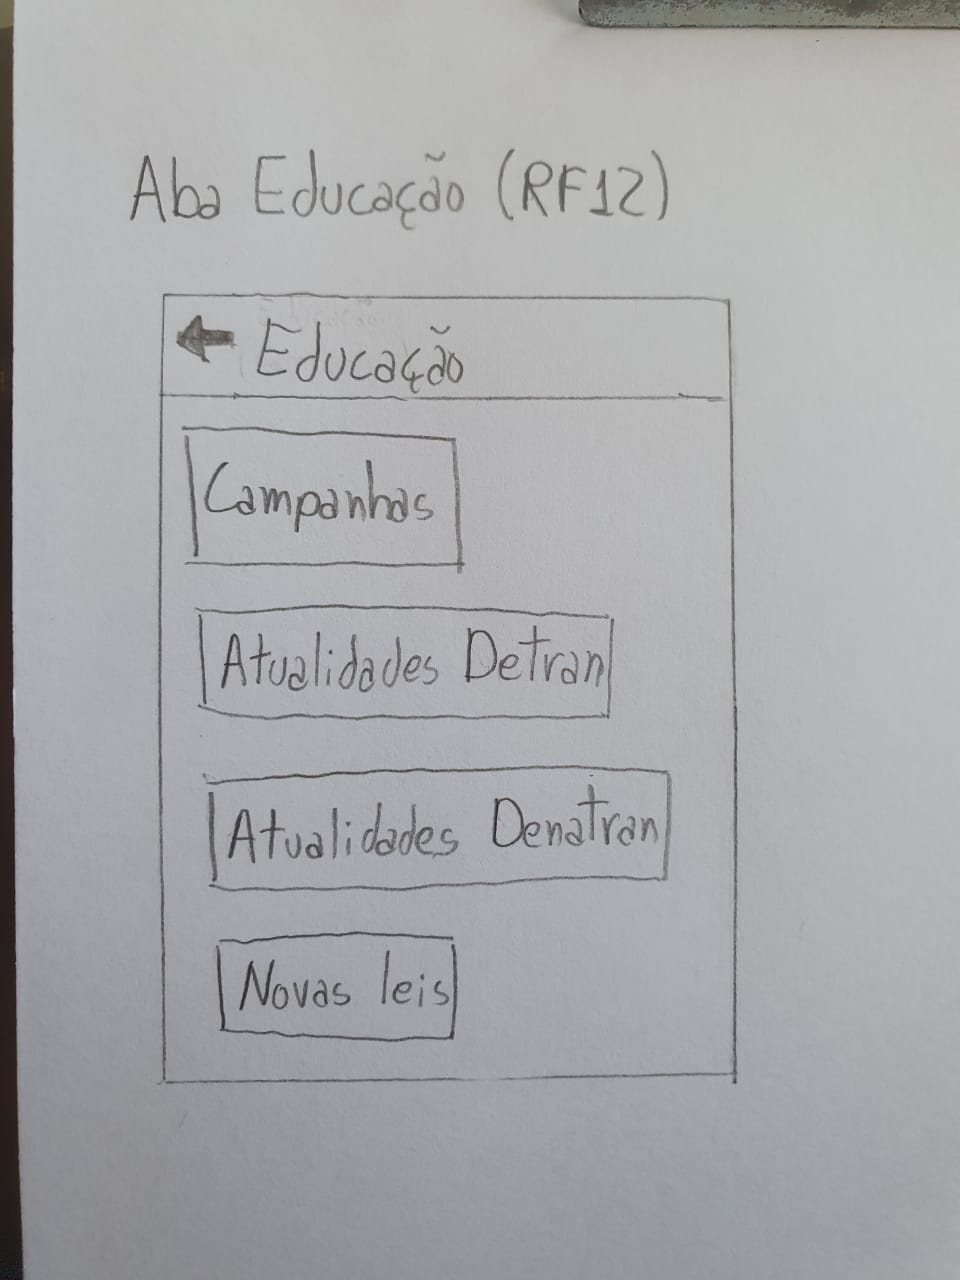 Aba Educação (RF12)
Educação
Campanhas
Atualidades Detran
Atualidades Denatran
Novas leis